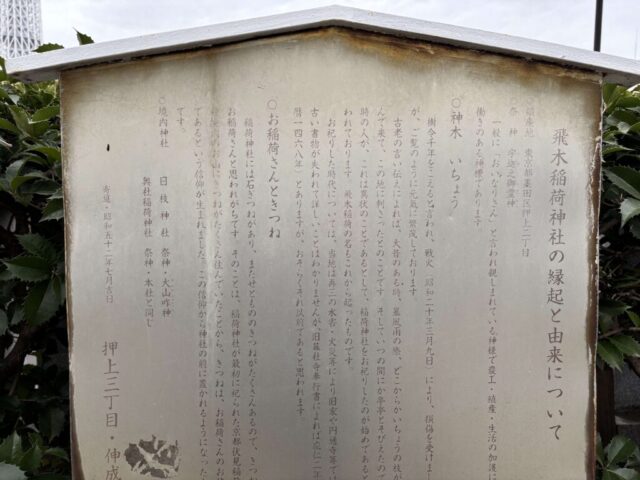 飛木稲荷神社の縁起と由来について
鎮座地 東京都墨田区押上二丁目
祭神 宇迦之御霊神
一般に「おいなりさん」と言われ親しまれている神様で農工・殖産・生活の加護に
働きのある神様であります。
○神木 いちょう
樹令千年をこえると言われ、戦火(昭和二十年三月九日)により、損傷を受けまし
が、ご覧のように元気に繁茂しております。
古老の言い伝えによれば、大昔のある時、暴風雨の際、どこからかいちょうの枝が
んで来て、この地に刺さったとのことです。そしていつの間にか亭亭とそびえたので
時の人が、これは異状のことであるとして、稲荷神社をお祀りしたのが始めであると
われております。飛木稲荷の名もこれから起ったものです。
お祀りした時代については、当地は再三の水害・火災等により旧家や円通寺等では
古い書物が失われて詳しいことはわかりませんが、旧篇社寺奉行書によれば応仁二年
暦一四六八年)とありますが、おそらくそれ以前であると思われます。
○お稲荷さんときつね
稲荷神社には石きつねがあり、またせとものきつねがたくさんあるので、きつね
お稲荷さんと思われがちです。そのことは、稲荷神社が最初に祀られた京都伏見稲荷
きつねがたくさん住んでいたことから、きつねは、お稲荷さんのお
であるという信仰が生まれました。この信仰から神社の前に置かれるようになった
です。
○境内神社 日枝神社 祭神・大山咋神
奥社稲荷神社 祭神・本社と同じ
奉進・昭和五十二年七月吉日
押上二丁目・伸成